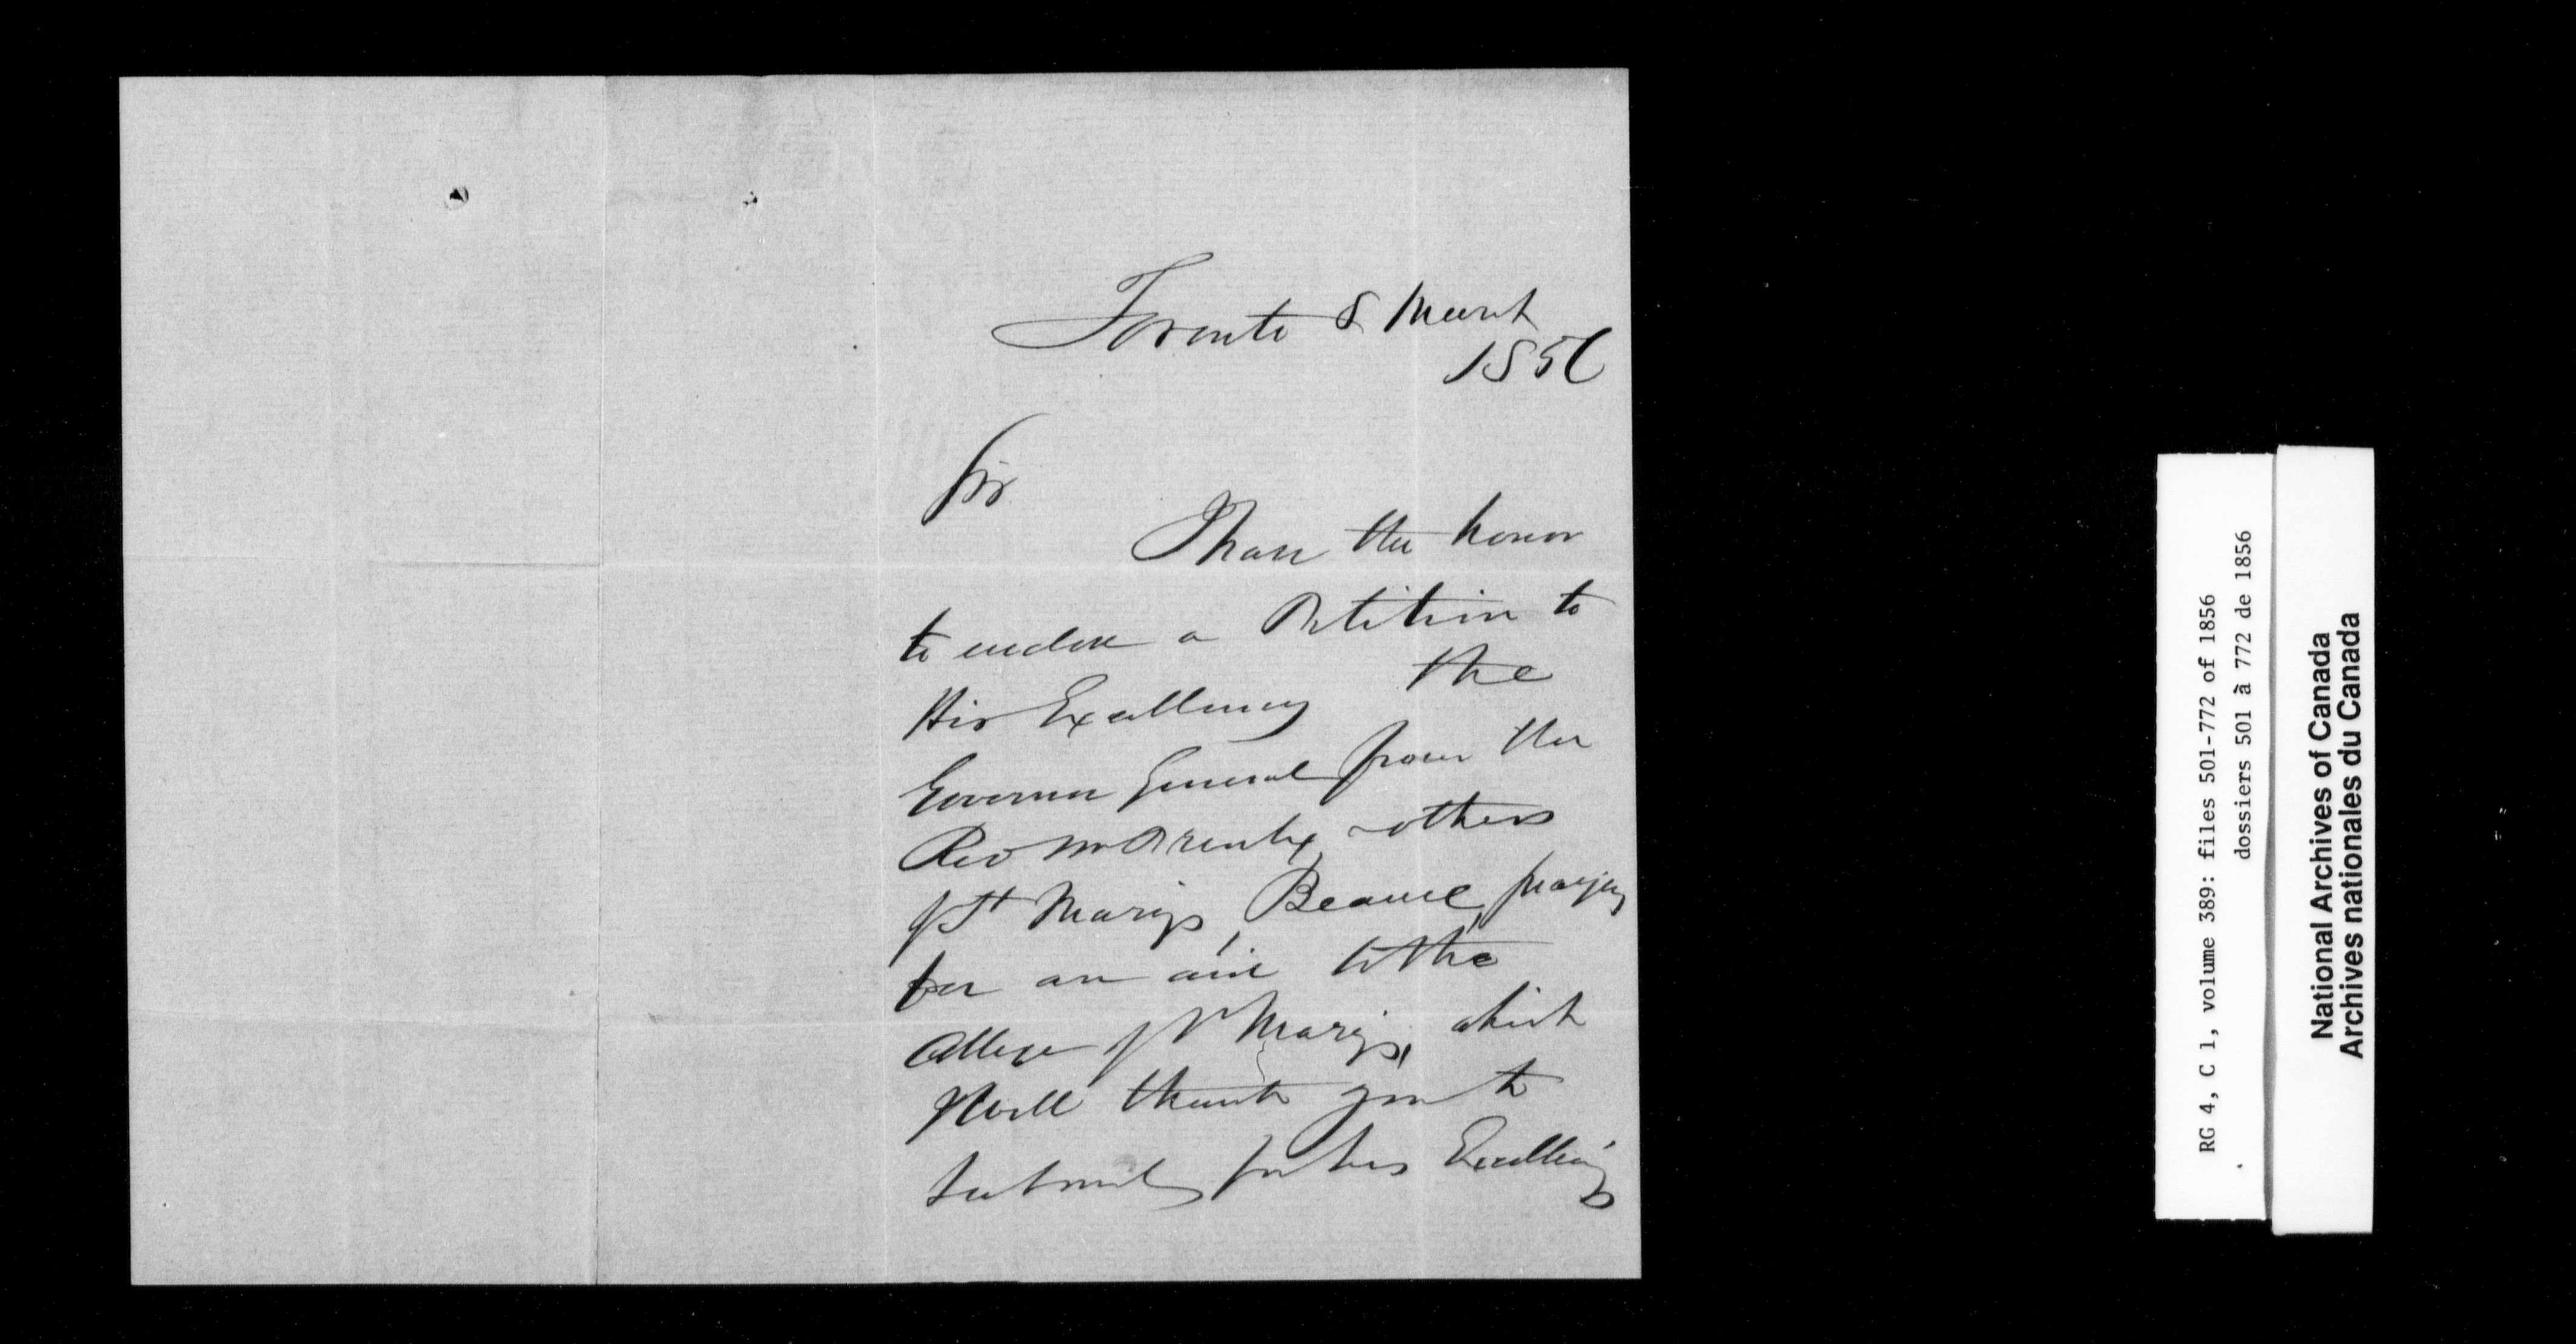 Toronto 8 March
1856
Sir
I have the honor
to enclose a Petition to
His Excellency the
Governor General from the
Rev Mr Proulx & others
of St Marys, Beauce, praying
for an aid to the
College of St Marys, which
I will thank you to
submit for his Excellency's
RG 4, C 1, volume 389: files 501-772 of 1856
dossiers 501 à 772 de 1856
National Archives of Canada
Archives nationales du Canada